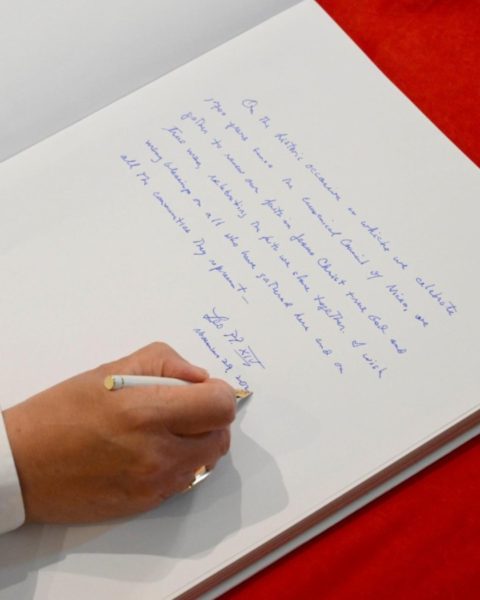 On the historic occasion on which we celebrate
1700 years since the Ecumenical Council of Nicea, we
gather to renew our faith in Jesus Christ true God and
true man, celebrating the faith we share together. I wish
many blessings on all who have gathered here and on
all the communities they represent —
Leo PP. XIV
November 29, 202